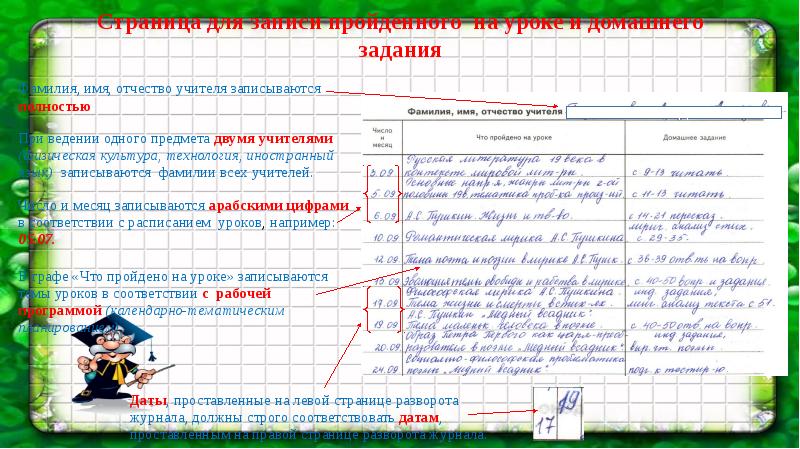 Страница для записи пройденного на уроке и домашнего
задания
Фамилия, имя, отчество учителя записываются
полностью
При ведении одного предмета двумя учителями
(физическая культура, технология, иностранный
язык) записываются фамилии всех учителей.
Число и месяц записываются арабскими цифрами
в соответствии с расписанием уроков, например:
05.07.
В графе «Что пройдено на уроке» записываются
темы уроков в соответствии с рабочей
программой (календарно-тематическим
планированием)
Даты, проставленные на левой странице разворота
журнала, должны строго соответствовать датам,
проставленным на правой странице разворота журнала.
Фамилия, имя, отчество учителя
Число и месяц Что пройдено на уроке Домашнее задание
Русская литература 19 века в
3.09 контексте мировой лит-ры. с 9-13 читать.
Основные напр-я, жанры лит-ры 2-ой
5.09 половины 19в, тематика, проб-ка произ-ий. с 11-13 читать
6.09 А.С. Пушкин. Жизнь и тв-во. с 14-21 пересказ.
лирич. анализ стих.
10.09 Романтическая лирика А.С. Пушкина с 29-35.
12.09 Тема поэта и поэзии в лирике А.С. Пушк. с 36-39 отв-ть на вопр.
13.09 Эволюция темы свободы и рабства в лирике. с 40-50 вопр и задания.
Философская лирика А.С. Пушкина. инд. задания,
17.09 Тема жизни и смерти в стих-ях. анализ текста с 51.
А.С. Пушкин "Медный всадник".
19.09 Тема маленьк. человека в поэме. с 40-50 отв. на вопр.
Образ Петра Первого как царя-преоб- инд задания,
20.09 разователя в поэме "Медный всадник" поэмы
Социально-философская проблематика
24.09 поэмы "Медный всадник". подг к тестир-ю.
17 19